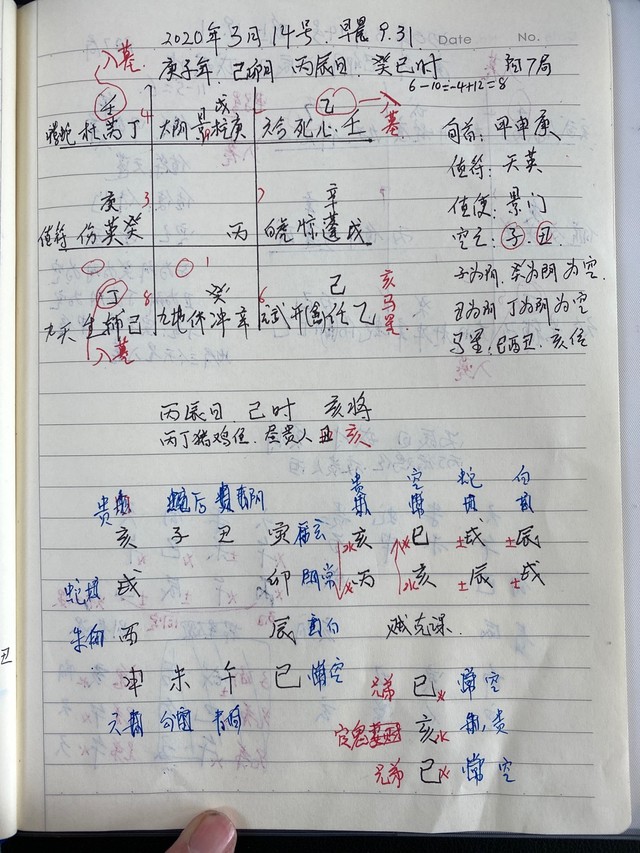 2020年3月14号 早晨 9.31
Date No.
入墓
庚子年 己卯月 丙辰日 癸巳时
6-10=-4+12=8
壬 4 戌 乙 入墓
螣蛇 杜芮丁 太阴 景柱庚 六合 死心 壬
旬首：甲申庚
值符：天英
庚 3 7 辛
值使：景门
值符 伤英癸 丙 白虎 惊蓬戊
空亡：子.丑
1
子为阴 癸为阴 为空
丁 8 癸 6 己 亥马星
九天 生辅己 九地休冲辛 开任乙
丑为阴 丁为阴 为空
马星：巳酉丑.亥位
入墓
丙辰日 巳时 亥将
丙丁猪鸡位.昼贵人 亥
贵 后 阴 贵 空 蛇 白
亥 子 丑 寅 玄 水亥 火巳 土戌 土辰
蛇 戌 卯 阴常 火丙 水亥 土辰 土戌
朱 酉 辰 白 贼克课
申 未 午 巳 常空
兄弟 巳火 常空
官鬼 亥水 贵
兄弟 巳火 常空
丑